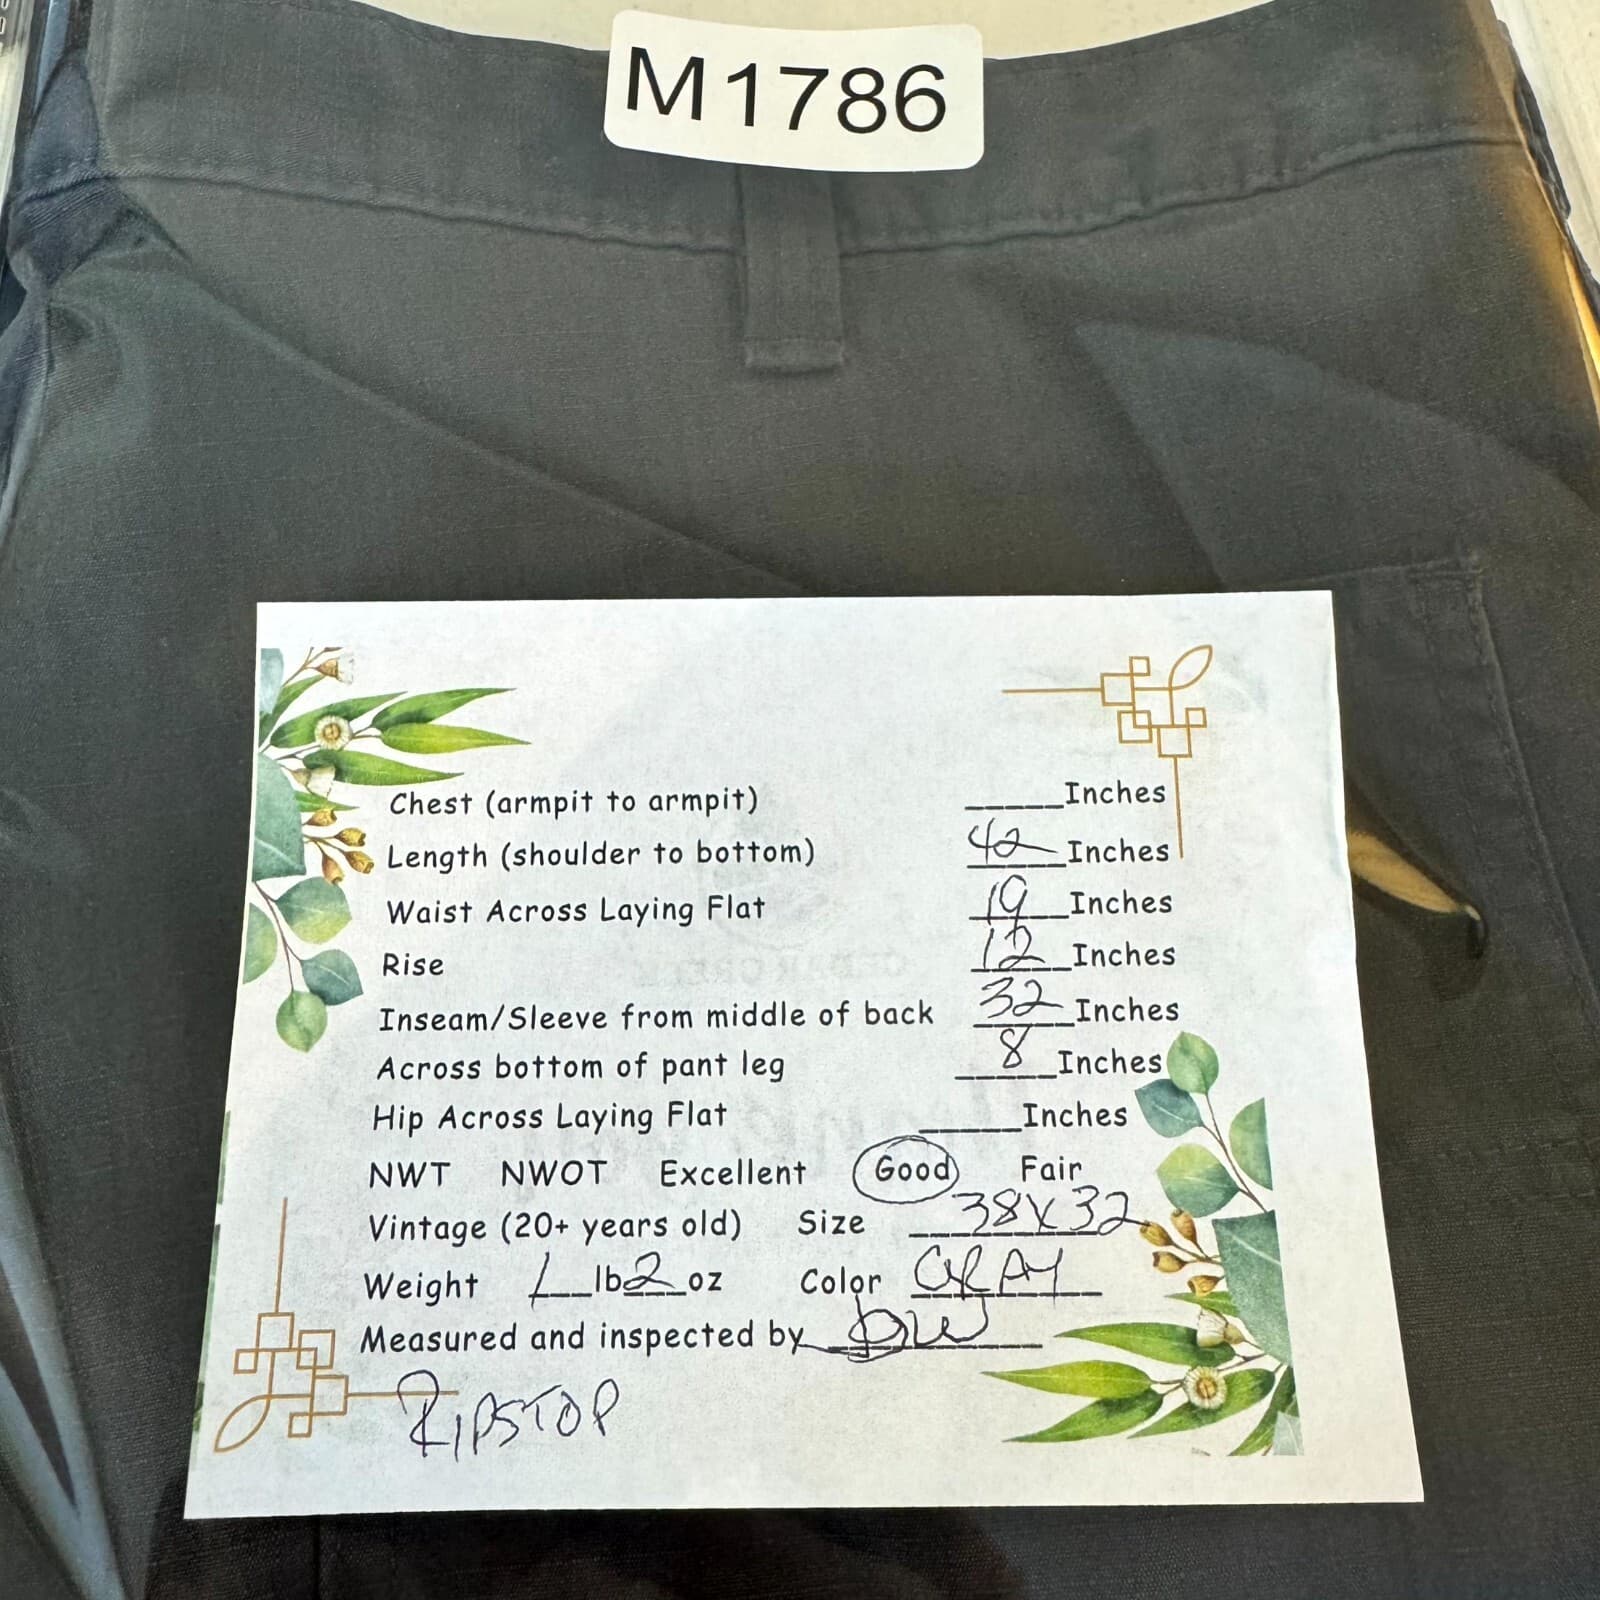 M1786
Chest (armpit to armpit) _____Inches
Length (shoulder to bottom) 42 Inches
Waist Across Laying Flat 19 Inches
Rise 12 Inches
Inseam/Sleeve from middle of back 32 Inches
Across bottom of pant leg 8 Inches
Hip Across Laying Flat _____Inches
NWT NWOT Excellent Good Fair
Vintage (20+ years old) Size 38X32
Weight 1 lb 2 oz Color GRAY
Measured and inspected by DW
RIPSTOP